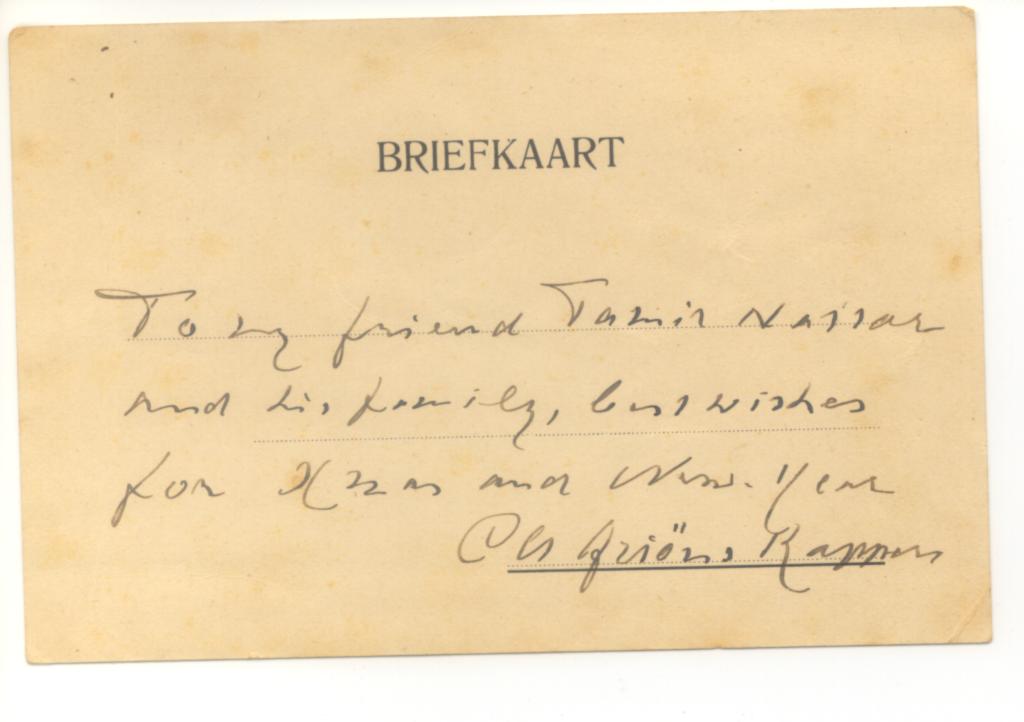 BRIEFKAART
To my friend Tamir Nassar
and his family, best wishes
for Xmas and New-Year
CU Ariëns Kappers